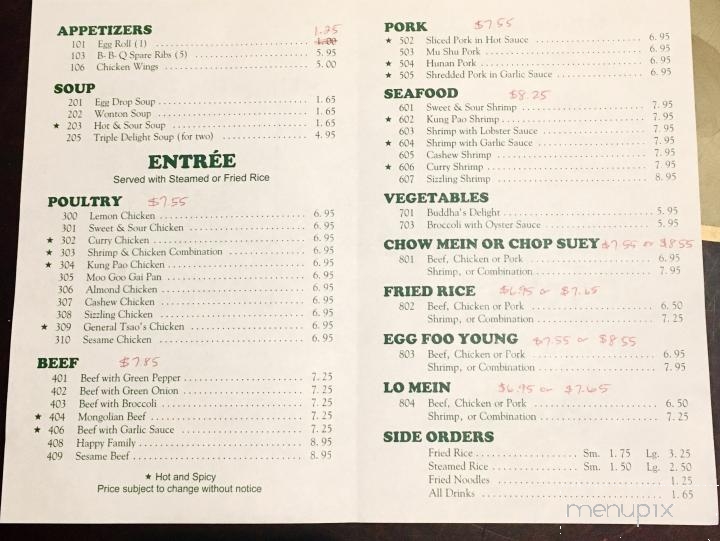 APPETIZERS 1.25
101 Egg Roll (1) 1.00
103 B-B-Q Spare Ribs (5) 5.95
106 Chicken Wings 5.00
SOUP
201 Egg Drop Soup 1.65
202 Wonton Soup 1.65
★ 203 Hot & Sour Soup 1.65
205 Triple Delight Soup (for two) 4.95
ENTRÉE
Served with Steamed or Fried Rice
POULTRY $7.55
300 Lemon Chicken 6.95
301 Sweet & Sour Chicken 6.95
★ 302 Curry Chicken 6.95
★ 303 Shrimp & Chicken Combination 6.95
★ 304 Kung Pao Chicken 6.95
305 Moo Goo Gai Pan 6.95
306 Almond Chicken 6.95
307 Cashew Chicken 6.95
308 Sizzling Chicken 6.95
★ 309 General Tsao's Chicken 6.95
310 Sesame Chicken 6.95
BEEF $7.85
401 Beef with Green Pepper 7.25
402 Beef with Green Onion 7.25
403 Beef with Broccoli 7.25
★ 404 Mongolian Beef 7.25
★ 406 Beef with Garlic Sauce 7.25
408 Happy Family 8.95
409 Sesame Beef 8.95
★ Hot and Spicy
Price subject to change without notice
PORK $7.55
★ 502 Sliced Pork in Hot Sauce 6.95
503 Mu Shu Pork 6.95
★ 504 Hunan Pork 6.95
★ 505 Shredded Pork in Garlic Sauce 6.95
SEAFOOD $8.25
601 Sweet & Sour Shrimp 7.95
★ 602 Kung Pao Shrimp 7.95
603 Shrimp with Lobster Sauce 7.95
★ 604 Shrimp with Garlic Sauce 7.95
605 Cashew Shrimp 7.95
★ 606 Curry Shrimp 7.95
607 Sizzling Shrimp 8.95
VEGETABLES
701 Buddha's Delight 5.95
703 Broccoli with Oyster Sauce 5.95
CHOW MEIN OR CHOP SUEY $7.55 or $8.55
801 Beef, Chicken or Pork 6.95
Shrimp, or Combination 7.95
FRIED RICE $6.95 or $7.65
802 Beef, Chicken or Pork 6.50
Shrimp, or Combination 7.25
EGG FOO YOUNG $7.55 or $8.55
803 Beef, Chicken or Pork 6.95
Shrimp, or Combination 7.95
LO MEIN $6.95 or $7.65
804 Beef, Chicken or Pork 6.50
Shrimp, or Combination 7.25
SIDE ORDERS
Fried Rice Sm. 1.75 Lg. 3.25
Steamed Rice Sm. 1.50 Lg. 2.50
Fried Noodles 1.25
All Drinks 1.65
menupix